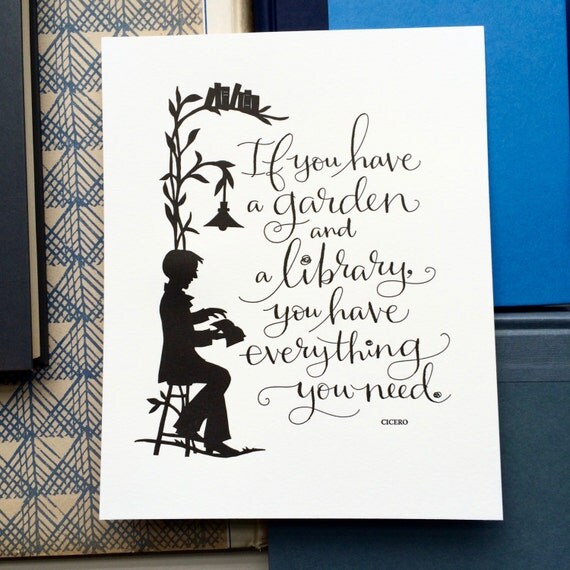 If you have
a garden
and
a library,
you have
everything
you need.
CICERO